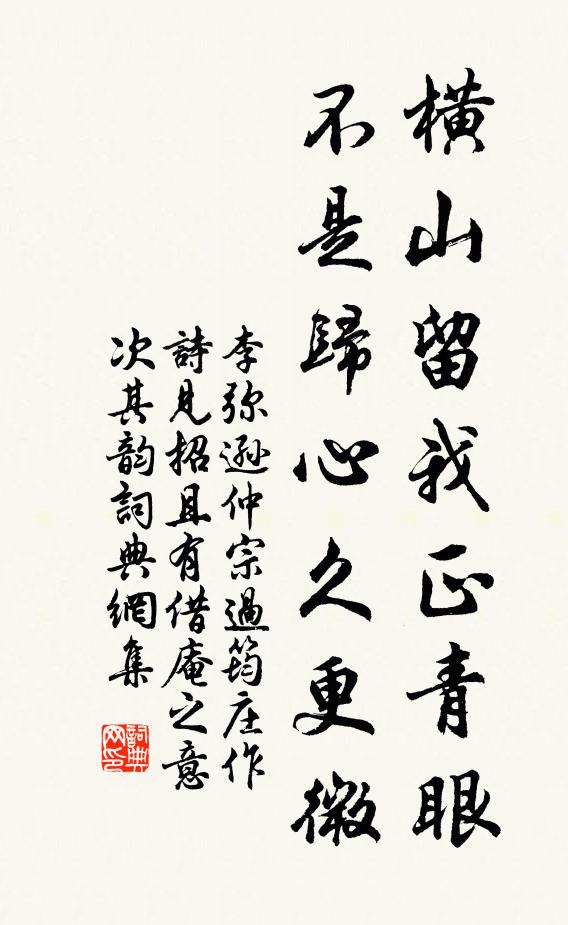 橫山留我正青眼
不是歸心久更微
李弥遜仲宗過筠庄作
詩見招且有借庵之意
次其韵詞典網集
詞典
网印